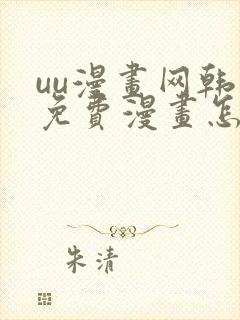 uu漫畫网韩
免費漫畫怎
朱清